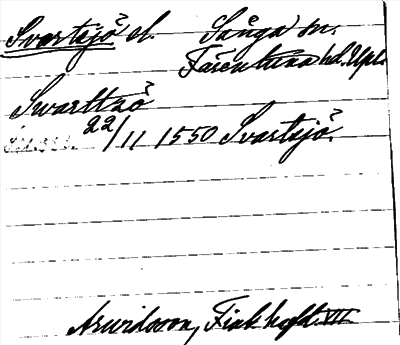 Svartsjö el. Sånga sn.
Färentuna hd. Upl.
Swarttzö
22/11 1550 Svartsjö.
Arwidsson, Finl. hgfl. VIII